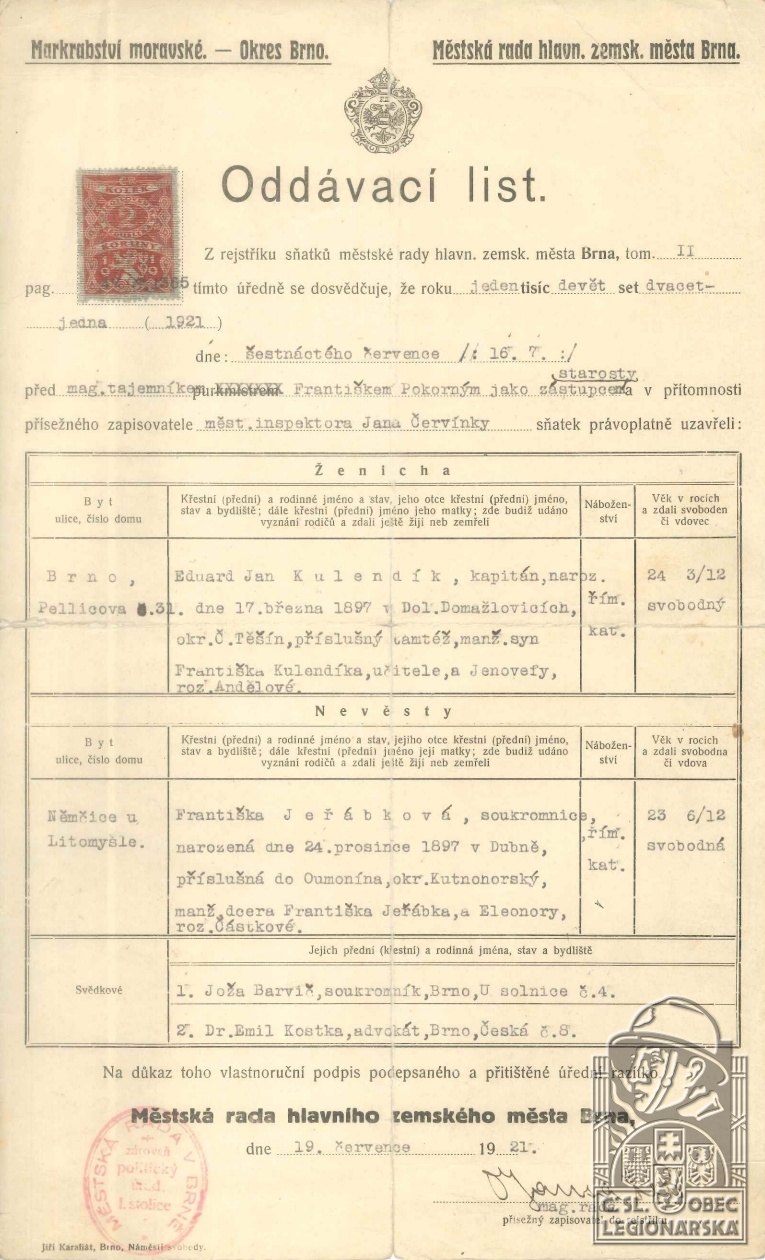 Markrabství moravské. — Okres Brno.
Městská rada hlavn. zemsk. města Brna.
KOLEK
2
KORUNY
Oddávací list.
Z rejstříku sňatků městské rady hlavn. zemsk. města Brna, tom. II
pag. tímto úředně se dosvědčuje, že roku jeden tisíc devět set dvacet-
jedna ( 1921 )
dne: šestnáctého července /: 16. 7. :/
starosty
před mag.tajemníkem purkmistrem XXXXXXX Františkem Pokorným jako zástupcem a v přítomnosti
přísežného zapisovatele měst.inspektora Jana Červínky sňatek právoplatně uzavřeli:
Ženicha
Byt
ulice, číslo domu
Křestní (přední) a rodinné jméno a stav, jeho otce křestní (přední) jméno,
stav a bydliště; dále křestní (přední) jméno jeho matky; zde budiž udáno
vyznání rodičů a zdali ještě žijí neb zemřeli
Nábožen-
ství
Věk v rocích
a zdali svoboden
či vdovec
Brno,
Pellicova č.31.
Eduard Jan Kulendík, kapitán,naroz.
dne 17.března 1897 v Dol.Domažlovicích,
okr.Č.Těšín,příslušný tamtéž,manž.syn
Františka Kulendíka,učitele,a Jenovefy,
roz.Andělové.
řím.
kat.
24 3/12
svobodný
Nevěsty
Byt
ulice, číslo domu
Křestní (přední) a rodinné jméno a stav, jejího otce křestní (přední) jméno,
stav a bydliště; dále křestní (přední) jméno její matky; zde budiž udáno
vyznání rodičů a zdali ještě žijí neb zemřeli
Nábožen-
ství
Věk v rocích
a zdali svobodna
či vdova
Němčice u
Litomyšle.
Františka Jeřábková, soukromnice,
narozená dne 24.prosince 1897 v Dubně,
příslušná do Oumonína,okr.Kutnonorský,
manž,dcera Františka Jeřábka,a Eleonory,
roz.Částkové.
řím.
kat.
23 6/12
svobodná
Svědkové
Jejich přední (křestní) a rodinná jména, stav a bydliště
1. Joža Barvič,soukromník,Brno,U solnice č.4.
2. Dr.Emil Kostka,advokát,Brno,Česká č.8.
Na důkaz toho vlastnoruční podpis podepsaného a přitištěné úřední razítko
Městská rada hlavního zemského města Brna,
dne 19. července 1921.
MĚSTSKÁ RADA V BRNĚ
zároveň
politický
úřad
I. stolice
mag.rada
přísežný zapisovatel do rejstříku.
Jiří Karafiát, Brno, Náměstí Svobody.
ČSL. OBEC
LEGIONÁŘSKÁ